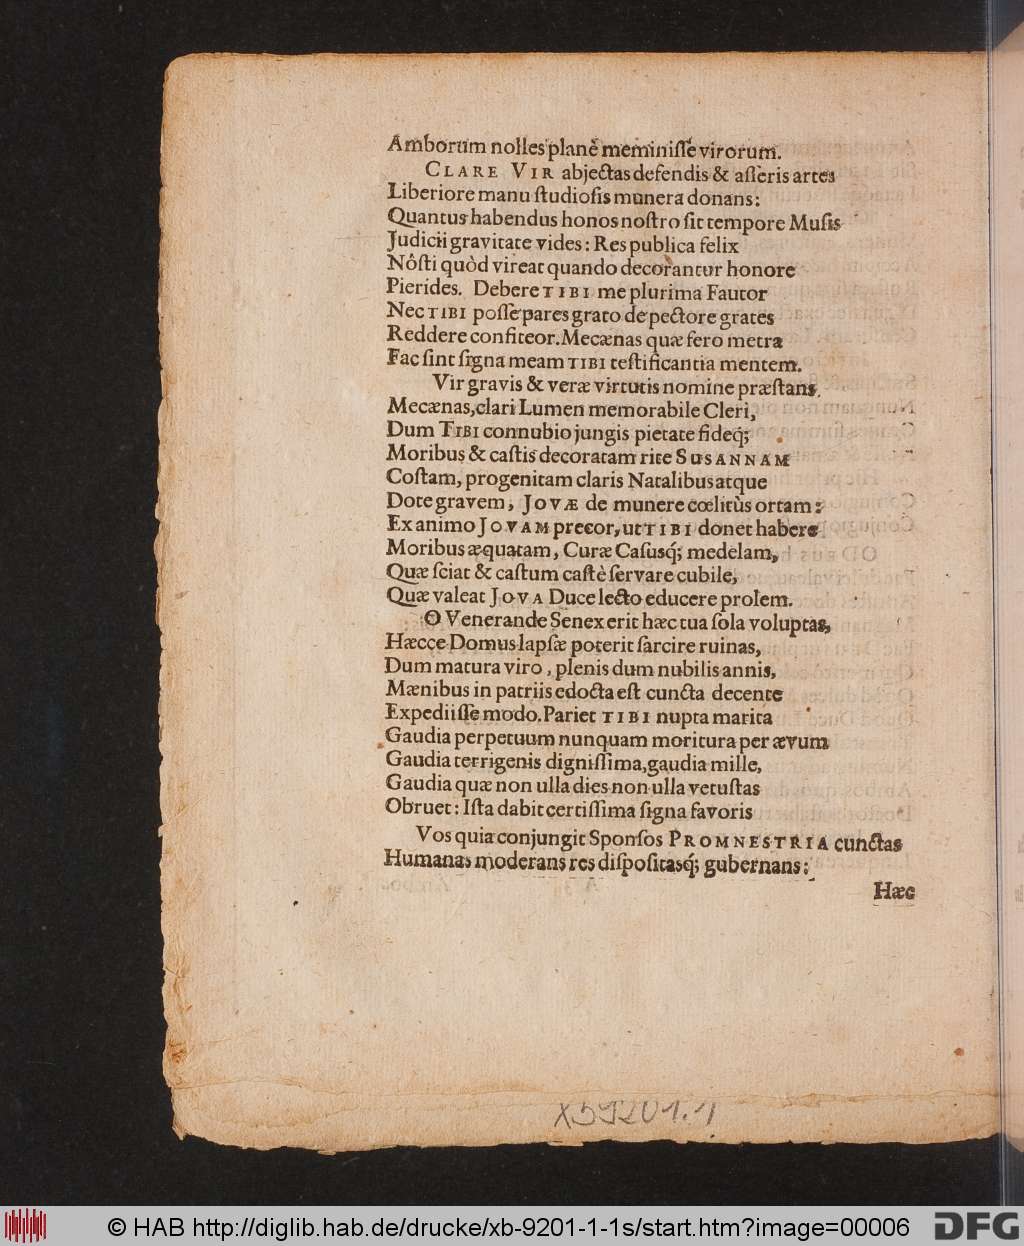 Amborum nolles planè meminiſſe virorum.
CLARE VIR abjectas defendis & aſſeris artes
Liberiore manu ſtudioſis munera donans:
Quantus habendus honos noſtro ſit tempore Muſis
Judicii gravitate vides: Res publica felix
Nôſti quòd vireat quando decorantur honore
Pierides. Debere TIBI me plurima Fautor
Nec TIBI poſſe pares grato de pectore grates
Reddere confiteor. Mecænas quæ fero metra
Fac ſint ſigna meam TIBI teſtificantia mentem.
Vir gravis & veræ virtutis nomine præſtans,
Mecænas, clari Lumen memorabile Cleri,
Dum TIBI connubio jungis pietate fideq́;
Moribus & caſtis decoratam rite SUSANNAM
Coſtam, progenitam claris Natalibus atque
Dote gravem, JOVÆ de munere cœlitùs ortam:
Ex animo JOVAM precor, ut TIBI donet habere
Moribus æquatam, Curæ Caſusq́; medelam,
Quæ ſciat & caſtum caſtè ſervare cubile,
Quæ valeat JOVA Duce lecto educere prolem.
O Venerande Senex erit hæc tua ſola voluptas,
Hæcce Domus lapſæ poterit ſarcire ruinas,
Dum matura viro, plenis dum nubilis annis,
Mænibus in patriis edocta eſt cuncta decente
Expediiſſe modo. Pariet TIBI nupta marita
Gaudia perpetuum nunquam moritura per ævum
Gaudia terrigenis digniſſima, gaudia mille,
Gaudia quæ non ulla dies non ulla vetuſtas
Obruet: Iſta dabit certiſſima ſigna favoris
Vos quia conjungit Sponſos PROMNESTRIA cunctas
Humanas moderans res diſpoſitasq́; gubernans:
Hæc
X59201.1
© HAB http://diglib.hab.de/drucke/xb-9201-1-1s/start.htm?image=00006
DFG